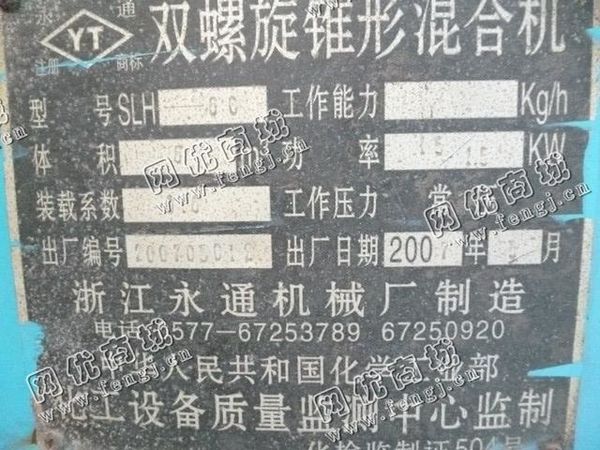 永 YT 通 双螺旋锥形混合机
注册 商标
型 号 SLH 工作能力 Kg/h
体 积 m3 功 率 15/1.5 KW
装载系数 工作压力 常
出厂编号 出厂日期 2007年 月
浙江永通机械厂制造
电话 0577-67253789 67250920
中华人民共和国化学工业部
化工设备质量监测中心监制
化检监制证504号
网优商城
www.fengj.cn
网优商城
www.fengj.cn
网优商城
www.fengj.cn
网优商城
www.fengj.cn
网优商城
www.fengj.cn